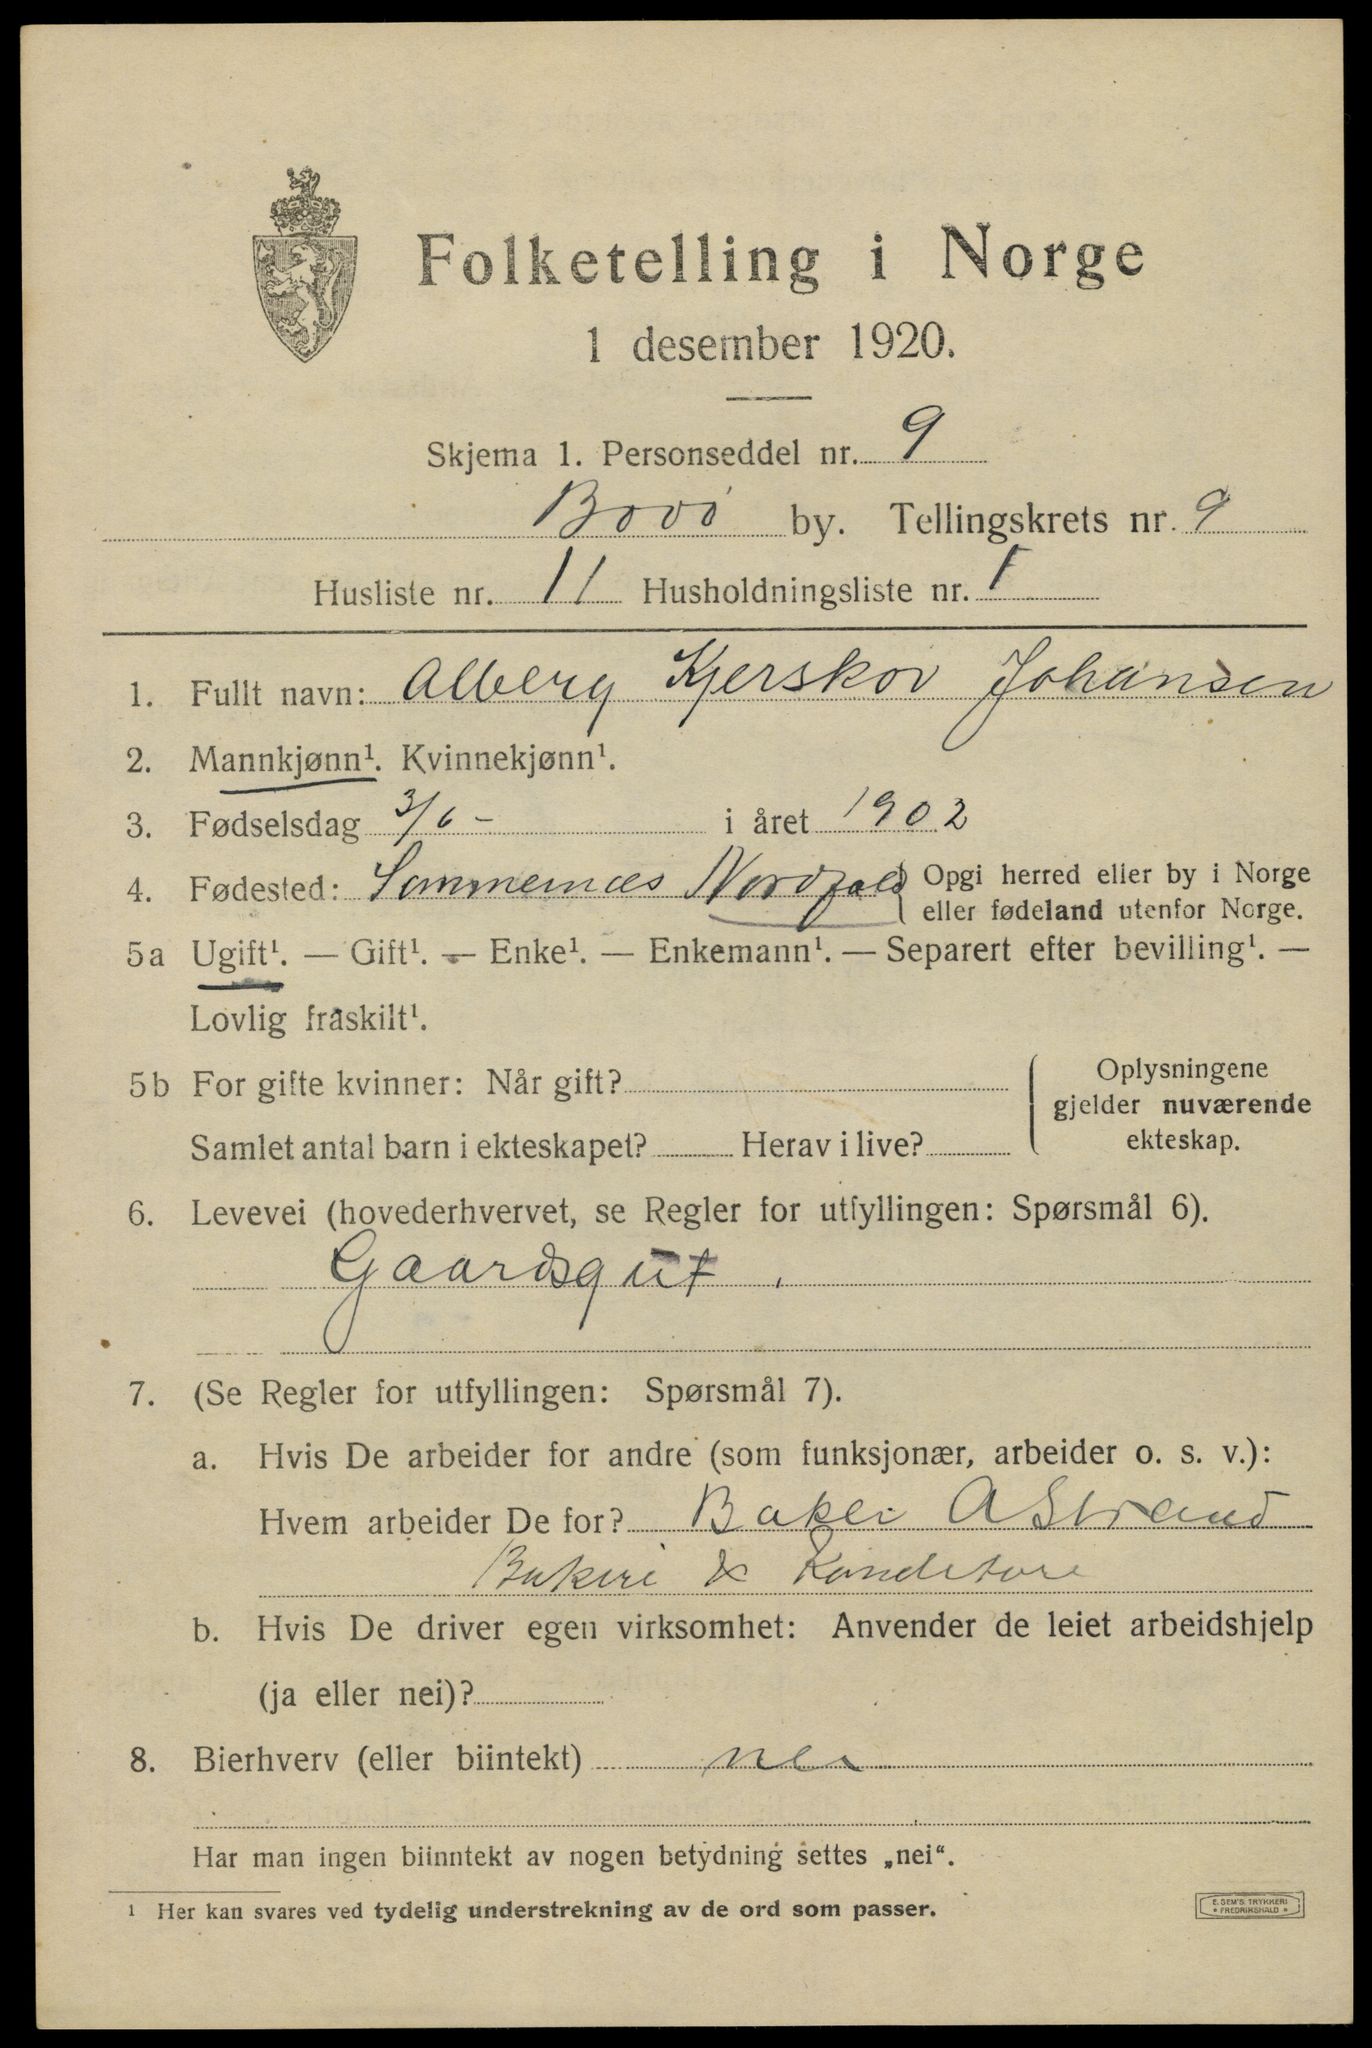 Folketelling i Norge
1 desember 1920.
Skjema 1. Personseddel nr. 9
Bodø by. Tellingskrets nr. 9
Husliste nr. 11 Husholdningsliste nr. 1
1. Fullt navn: Alberg Kjerskov Johansen
2. Mannkjønn¹. Kvinnekjønn¹.
3. Fødselsdag 3/6 - i året 1902
4. Fødested: Sommernæs Nordfold
Opgi herred eller by i Norge
eller fødeland utenfor Norge.
5a Ugift¹. — Gift¹. — Enke¹. — Enkemann¹. — Separert efter bevilling¹. —
Lovlig fraskilt¹.
5b For gifte kvinner: Når gift?
Samlet antal barn i ekteskapet? Herav i live?
Oplysningene
gjelder nuværende
ekteskap.
6. Levevei (hovederhvervet, se Regler for utfyllingen: Spørsmål 6).
Gaardsgut.
7. (Se Regler for utfyllingen: Spørsmål 7).
a. Hvis De arbeider for andre (som funksjonær, arbeider o. s. v.):
Hvem arbeider De for? Baker A Strand
Bakeri & Konditore
b. Hvis De driver egen virksomhet: Anvender de leiet arbeidshjelp
(ja eller nei)?
8. Bierhverv (eller biintekt) nei
Har man ingen biinntekt av nogen betydning settes „nei“.
¹ Her kan svares ved tydelig understrekning av de ord som passer.
E. SEM'S TRYKKERI
* FREDRIKSHALD *